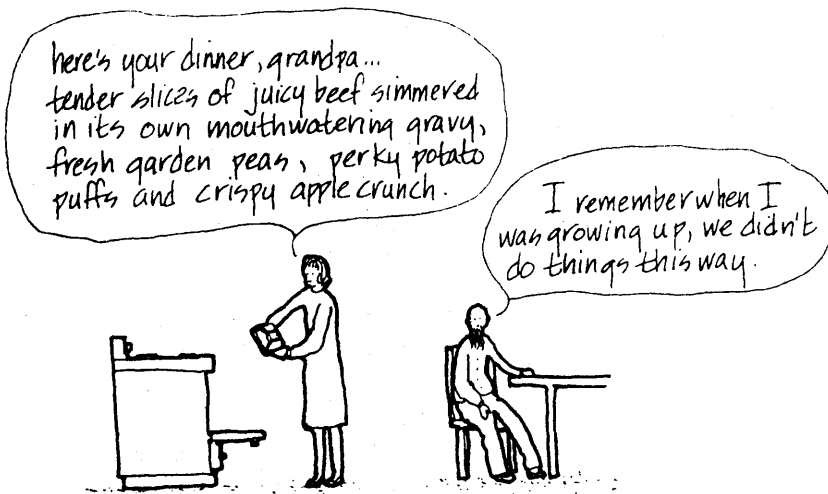 here's your dinner, grandpa...
tender slices of juicy beef simmered
in its own mouthwatering gravy,
fresh garden peas, perky potato
puffs and crispy apple crunch.
I remember when I
was growing up, we didn't
do things this way.